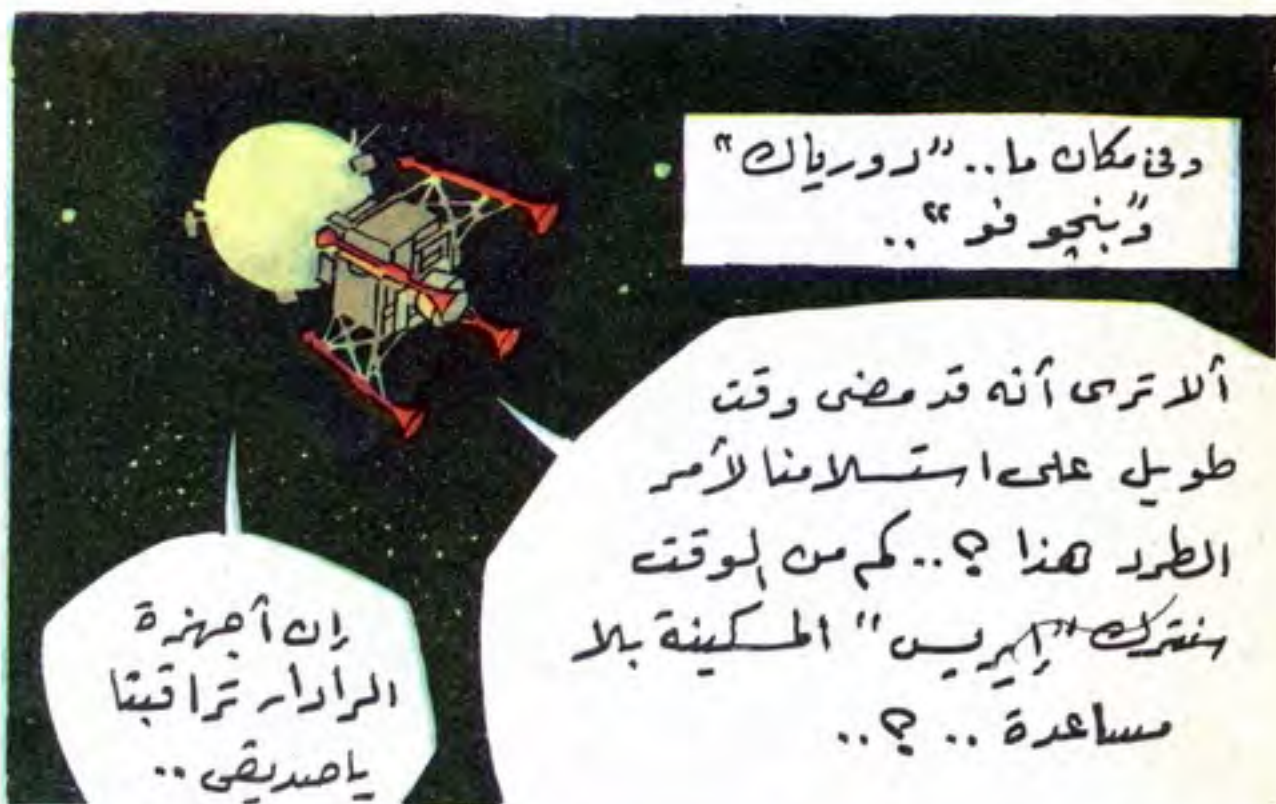 وفى مكان ما.. "دورياك"
و"بنچو فو"..
ألا ترى أنه قد مضى وقت
طويل على استسلامنا لأمر
الطرد هذا ؟.. كم من الوقت
سنترك "إيريس" المسكينة بلا
مساعدة .. ؟..
إن أجهزة
الرادار تراقبنا
ياصديقى ..